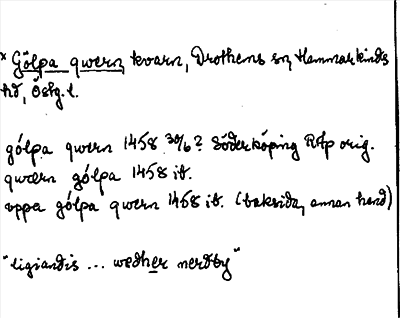 * Gölpa qwern, kvarn, Drothems sn, Hammarkinds
hd, Östg. l.
gólpa qwern 1458 30/6? Söderköping RAp orig.
qwærn gólpa 1458 ib.
uppa gólpa qwern 1458 ib. (baksida, annan hand)
"ligiandis ... wedher nerdby"